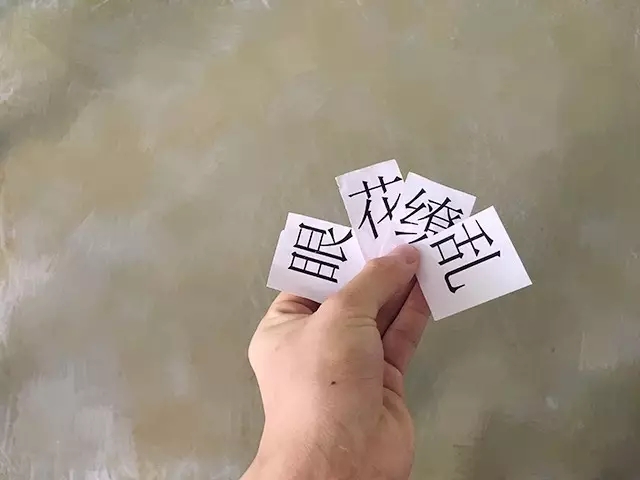 眼花缭乱